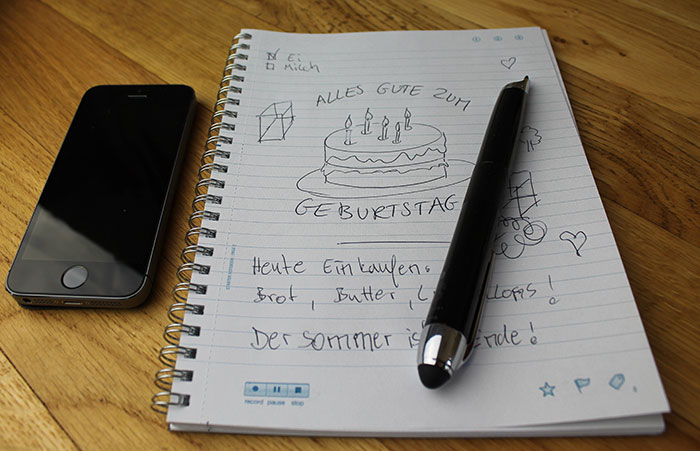 Ei
Milch
ALLES GUTE ZUM
GEBURTSTAG
Heute Einkaufen:
Brot, Butter,
Der Sommer
record pause stop